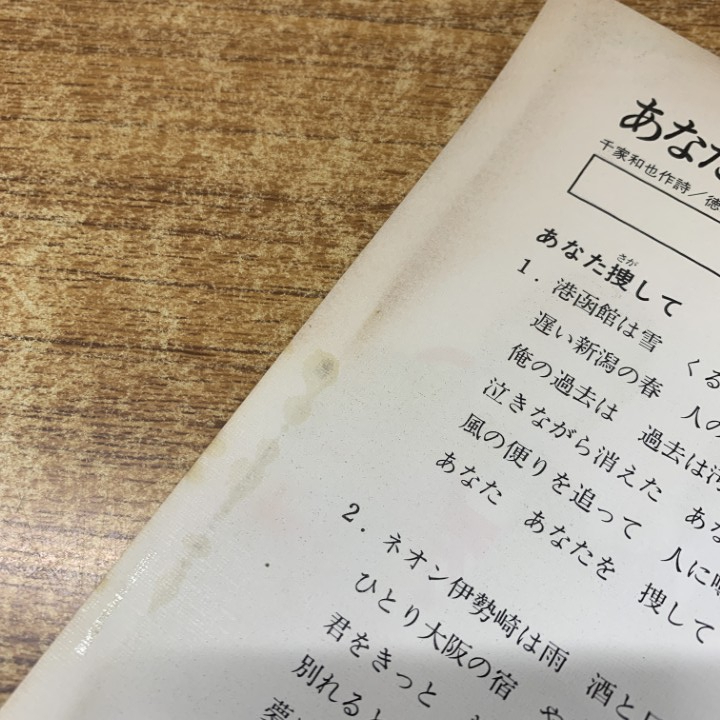 あなた
千家和也作詩／徳
あなた捜して
さが
1. 港函館は雪 くる
遅い新潟の春 人の
俺の過去は 過去は
泣きながら消えた あな
風の便りを追って 人に
あなた あなたを 捜して
2. ネオン伊勢崎は雨 酒と
ひとり大阪の宿 や
君をきっと
別れると
夢